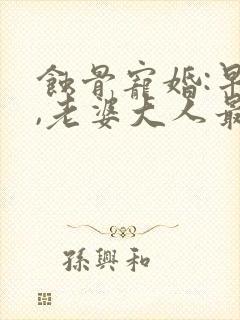 蝕骨寵婚:
,老婆大人最
孫興和